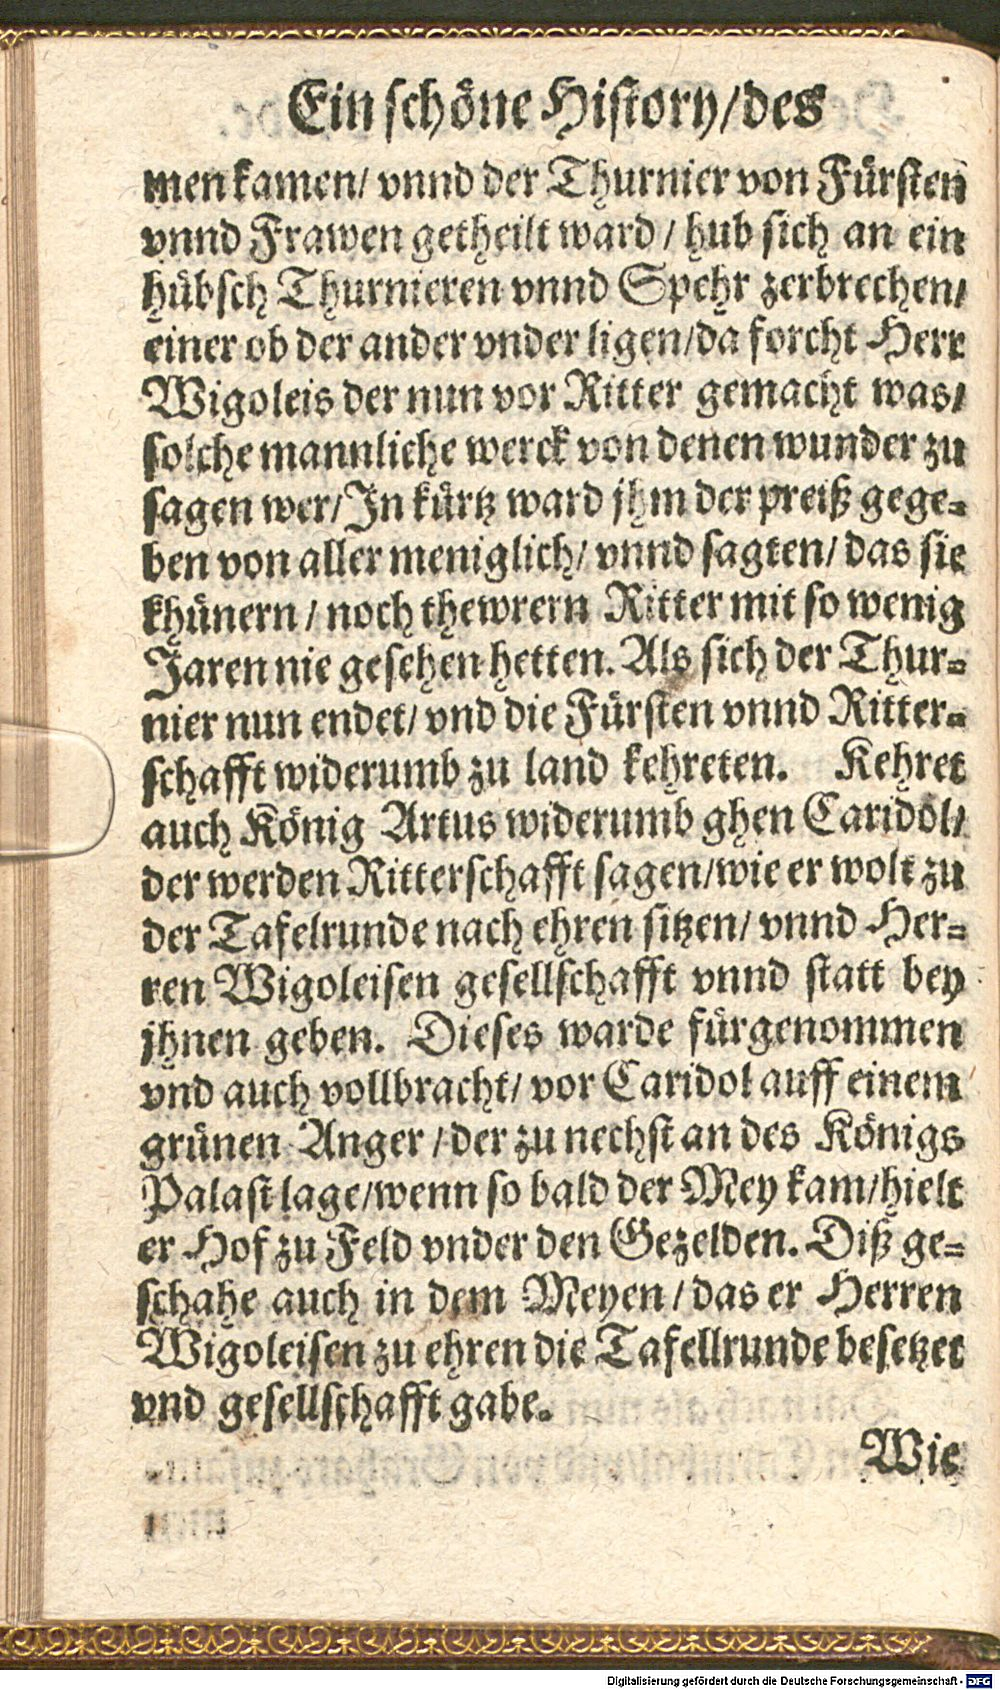 Ein schöne History/des
men kamen/ vnnd der Thurnier von Fürsten
vnnd Frawen getheilt ward / hub sich an ein
hübsch Thurnieren vnnd Spehr zerbrechen/
einer ob der ander vnder ligen/da forcht Herr
Wigoleis der nun vor Ritter gemacht was/
solche mannliche werck von denen wunder zu
sagen wer/In kürtz ward jhm der preiß gege-
ben von aller meniglich/ vnnd sagten/ das sie
khünern / noch thewrern Ritter mit so wenig
Jaren nie gesehen hetten. Als sich der Thur-
nier nun endet/ vnd die Fürsten vnnd Ritter-
schafft widerumb zu land kehreten. Kehret
auch König Artus widerumb ghen Caridol/
der werden Ritterschafft sagen/wie er wolt zu
der Tafelrunde nach ehren sitzen/ vnnd Her-
ren Wigoleisen gesellschafft vnnd statt bey
jhnen geben. Dieses warde fürgenommen
vnd auch vollbracht/ vor Caridol auff einem
grünen Anger /der zu nechst an des Königs
Palast lage/wenn so bald der Mey kam/hielt
er Hof zu Feld vnder den Gezelden. Diß ge-
schahe auch in dem Meyen / das er Herren
Wigoleisen zu ehren die Tafellrunde besetzet
vnd gesellschafft gabe.
Wie
Digitalisierung gefördert durch die Deutsche Forschungsgemeinschaft - DFG